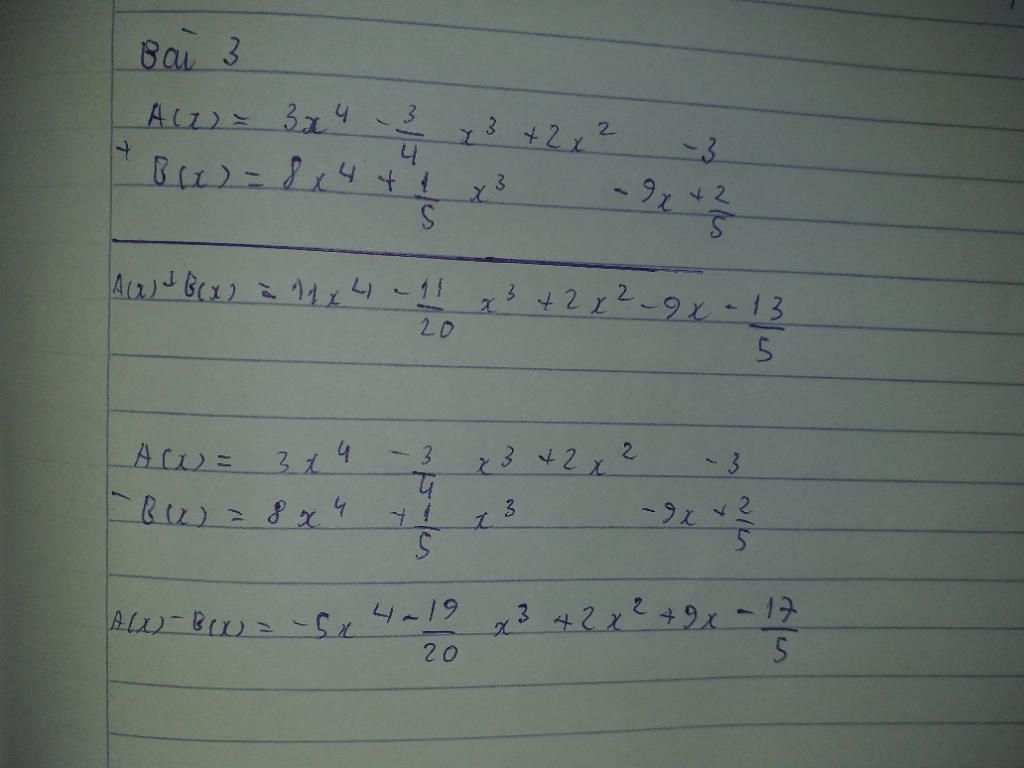 Bài 3
A(x) = 3x⁴ - 3/4 x³ + 2x² - 3
+
B(x) = 8x⁴ + 1/5 x³ - 9x + 2/5
A(x) + B(x) = 11x⁴ - 11/20 x³ + 2x² - 9x - 13/5
A(x) = 3x⁴ - 3/4 x³ + 2x² - 3
-
B(x) = 8x⁴ + 1/5 x³ - 9x + 2/5
A(x) - B(x) = -5x⁴ - 19/20 x³ + 2x² + 9x - 17/5